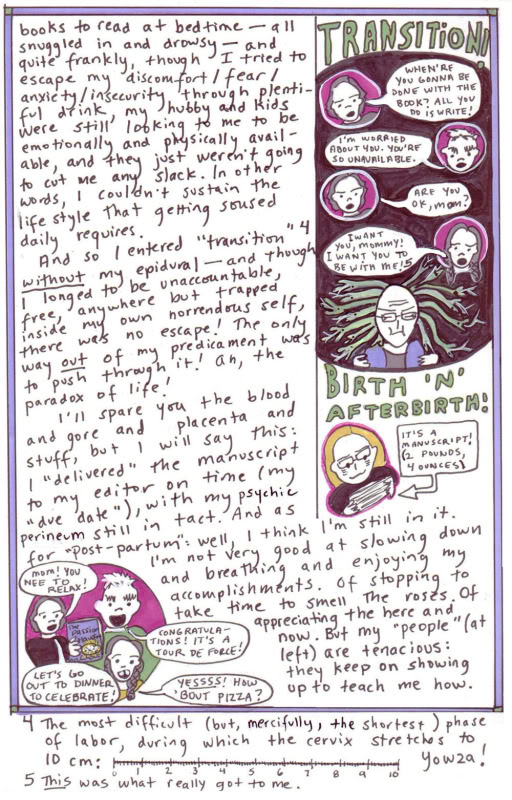 books to read at bedtime — all
snuggled in and drowsy — and
quite frankly, though I tried to
escape my discomfort/fear/
anxiety/insecurity through plenti-
ful drink, my hubby and kids
were still looking to me to be
emotionally and physically avail-
able, and they just weren't going
to cut me any slack. In other
words, I couldn't sustain the
life style that getting soused
daily requires.
And so I entered "transition" 4
without my epidural — and though
I longed to be unaccountable,
free, anywhere but trapped
inside my own horrendous self,
there was no escape! The only
way out of my predicament was
to push through it! Ah, the
paradox of life!
I'll spare you the blood
and gore and placenta and
stuff, but I will say this:
I "delivered" the manuscript
to my editor on time (my
"due date"), with my psychic
perineum still in tact. And as
for "post-partum": well, I think I'm still in it.
I'm not very good at slowing down
and breathing and enjoying my
accomplishments. Of stopping to
take time to smell the roses. Of
appreciating the here and
now. But my "people" (at
left) are tenacious:
they keep on showing
up to teach me how.
TRANSITION!
WHEN'RE
YOU GONNA BE
DONE WITH THE
BOOK? ALL YOU
DO IS WRITE!
I'M WORRIED
ABOUT YOU. YOU'RE
SO UNAVAILABLE.
ARE YOU
OK, MOM?
I WANT
YOU, MOMMY!
I WANT YOU TO
BE WITH ME! 5
BIRTH 'N'
AFTERBIRTH!
IT'S A
MANUSCRIPT!
(2 POUNDS,
4 OUNCES)
MOM! YOU
NEED TO
RELAX!
The
Passion
CONGRATULA-
TIONS! IT'S A
TOUR DE FORCE!
LET'S GO
OUT TO DINNER
TO CELEBRATE!
YESSSS! HOW
'BOUT PIZZA?
4 The most difficult (but, mercifully, the shortest) phase
of labor, during which the cervix stretches to
10 cm: 0 1 2 3 4 5 6 7 8 9 10 Yowza!
5 This was what really got to me.